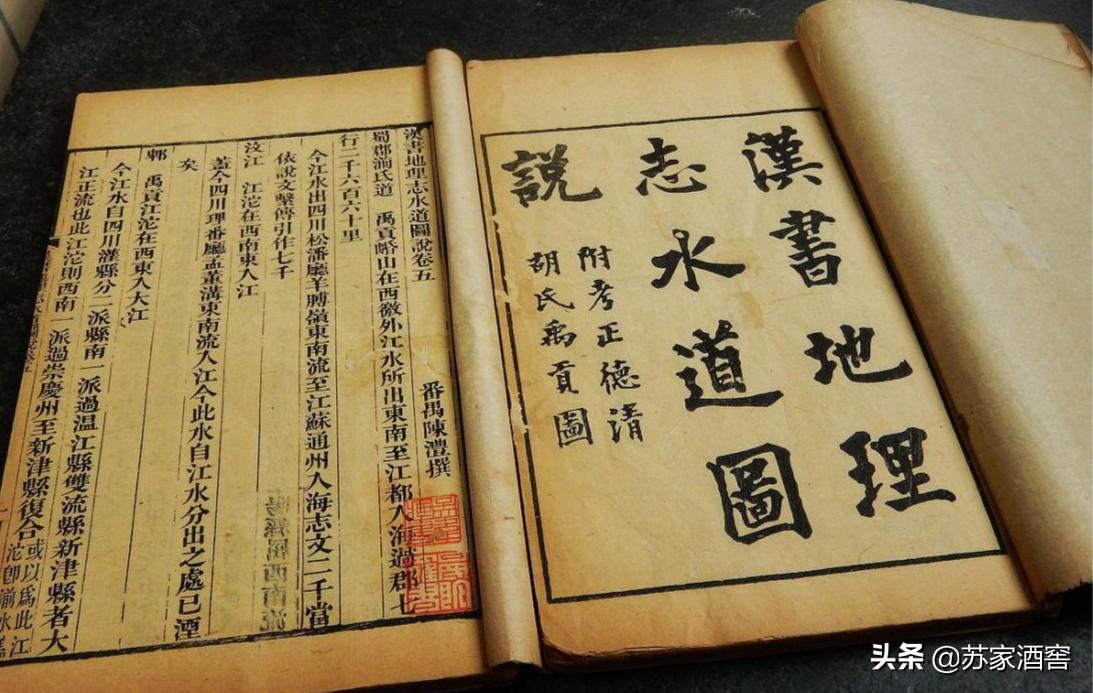 漢書地理
志水道圖
說
附考正德清
胡氏禹貢圖
漢書地理志水道圖說卷五 番禺陳澧撰
蜀郡湔氏道 禹貢㟭山在西徼外江水所出東南至江都入海過郡七
行二千六百六十里
今江水出四川松潘廳羊膊嶺東南流至江蘇通州入海志文二千當
依說文繫傳引作七千
汶江 江沱在西南東入江
蓋今四川理番廳孟董溝東南流入江今此水自江水分出之處已湮
矣
郫 禹貢江沱在西東入大江
今江水自四川灌縣分二派縣南一派過温江縣雙流縣新津縣者大
江正流也此江沱則西南一派過崇慶州至新津縣復合
或以爲此江
沱卽湔水
头条 @苏家酒窖